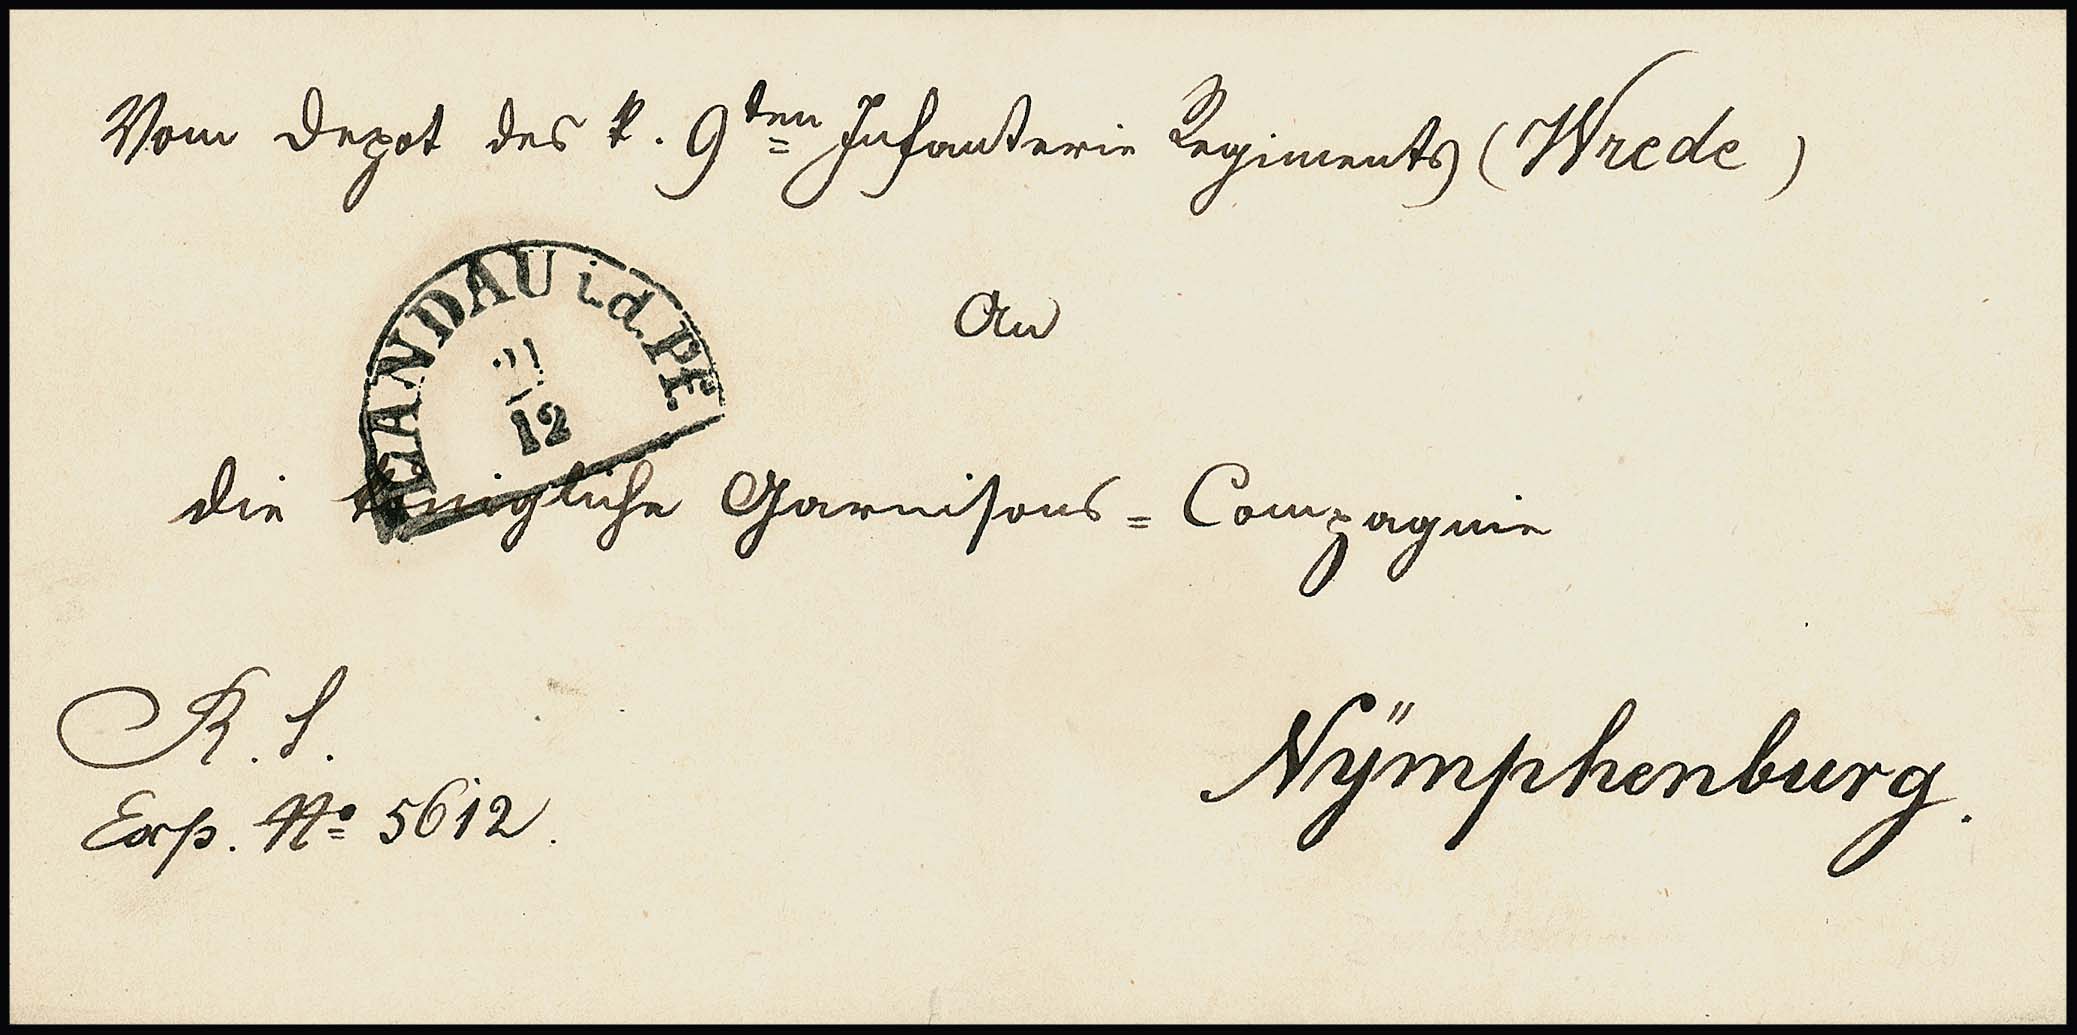 Vom Depot des k. 9ten Infanterie Regiments (Wrede)
LANDAU i.d. PF
12
An
die königliche Garnisons=Compagnie
R. S.
Nÿmphenburg.
Exp. No 5612.